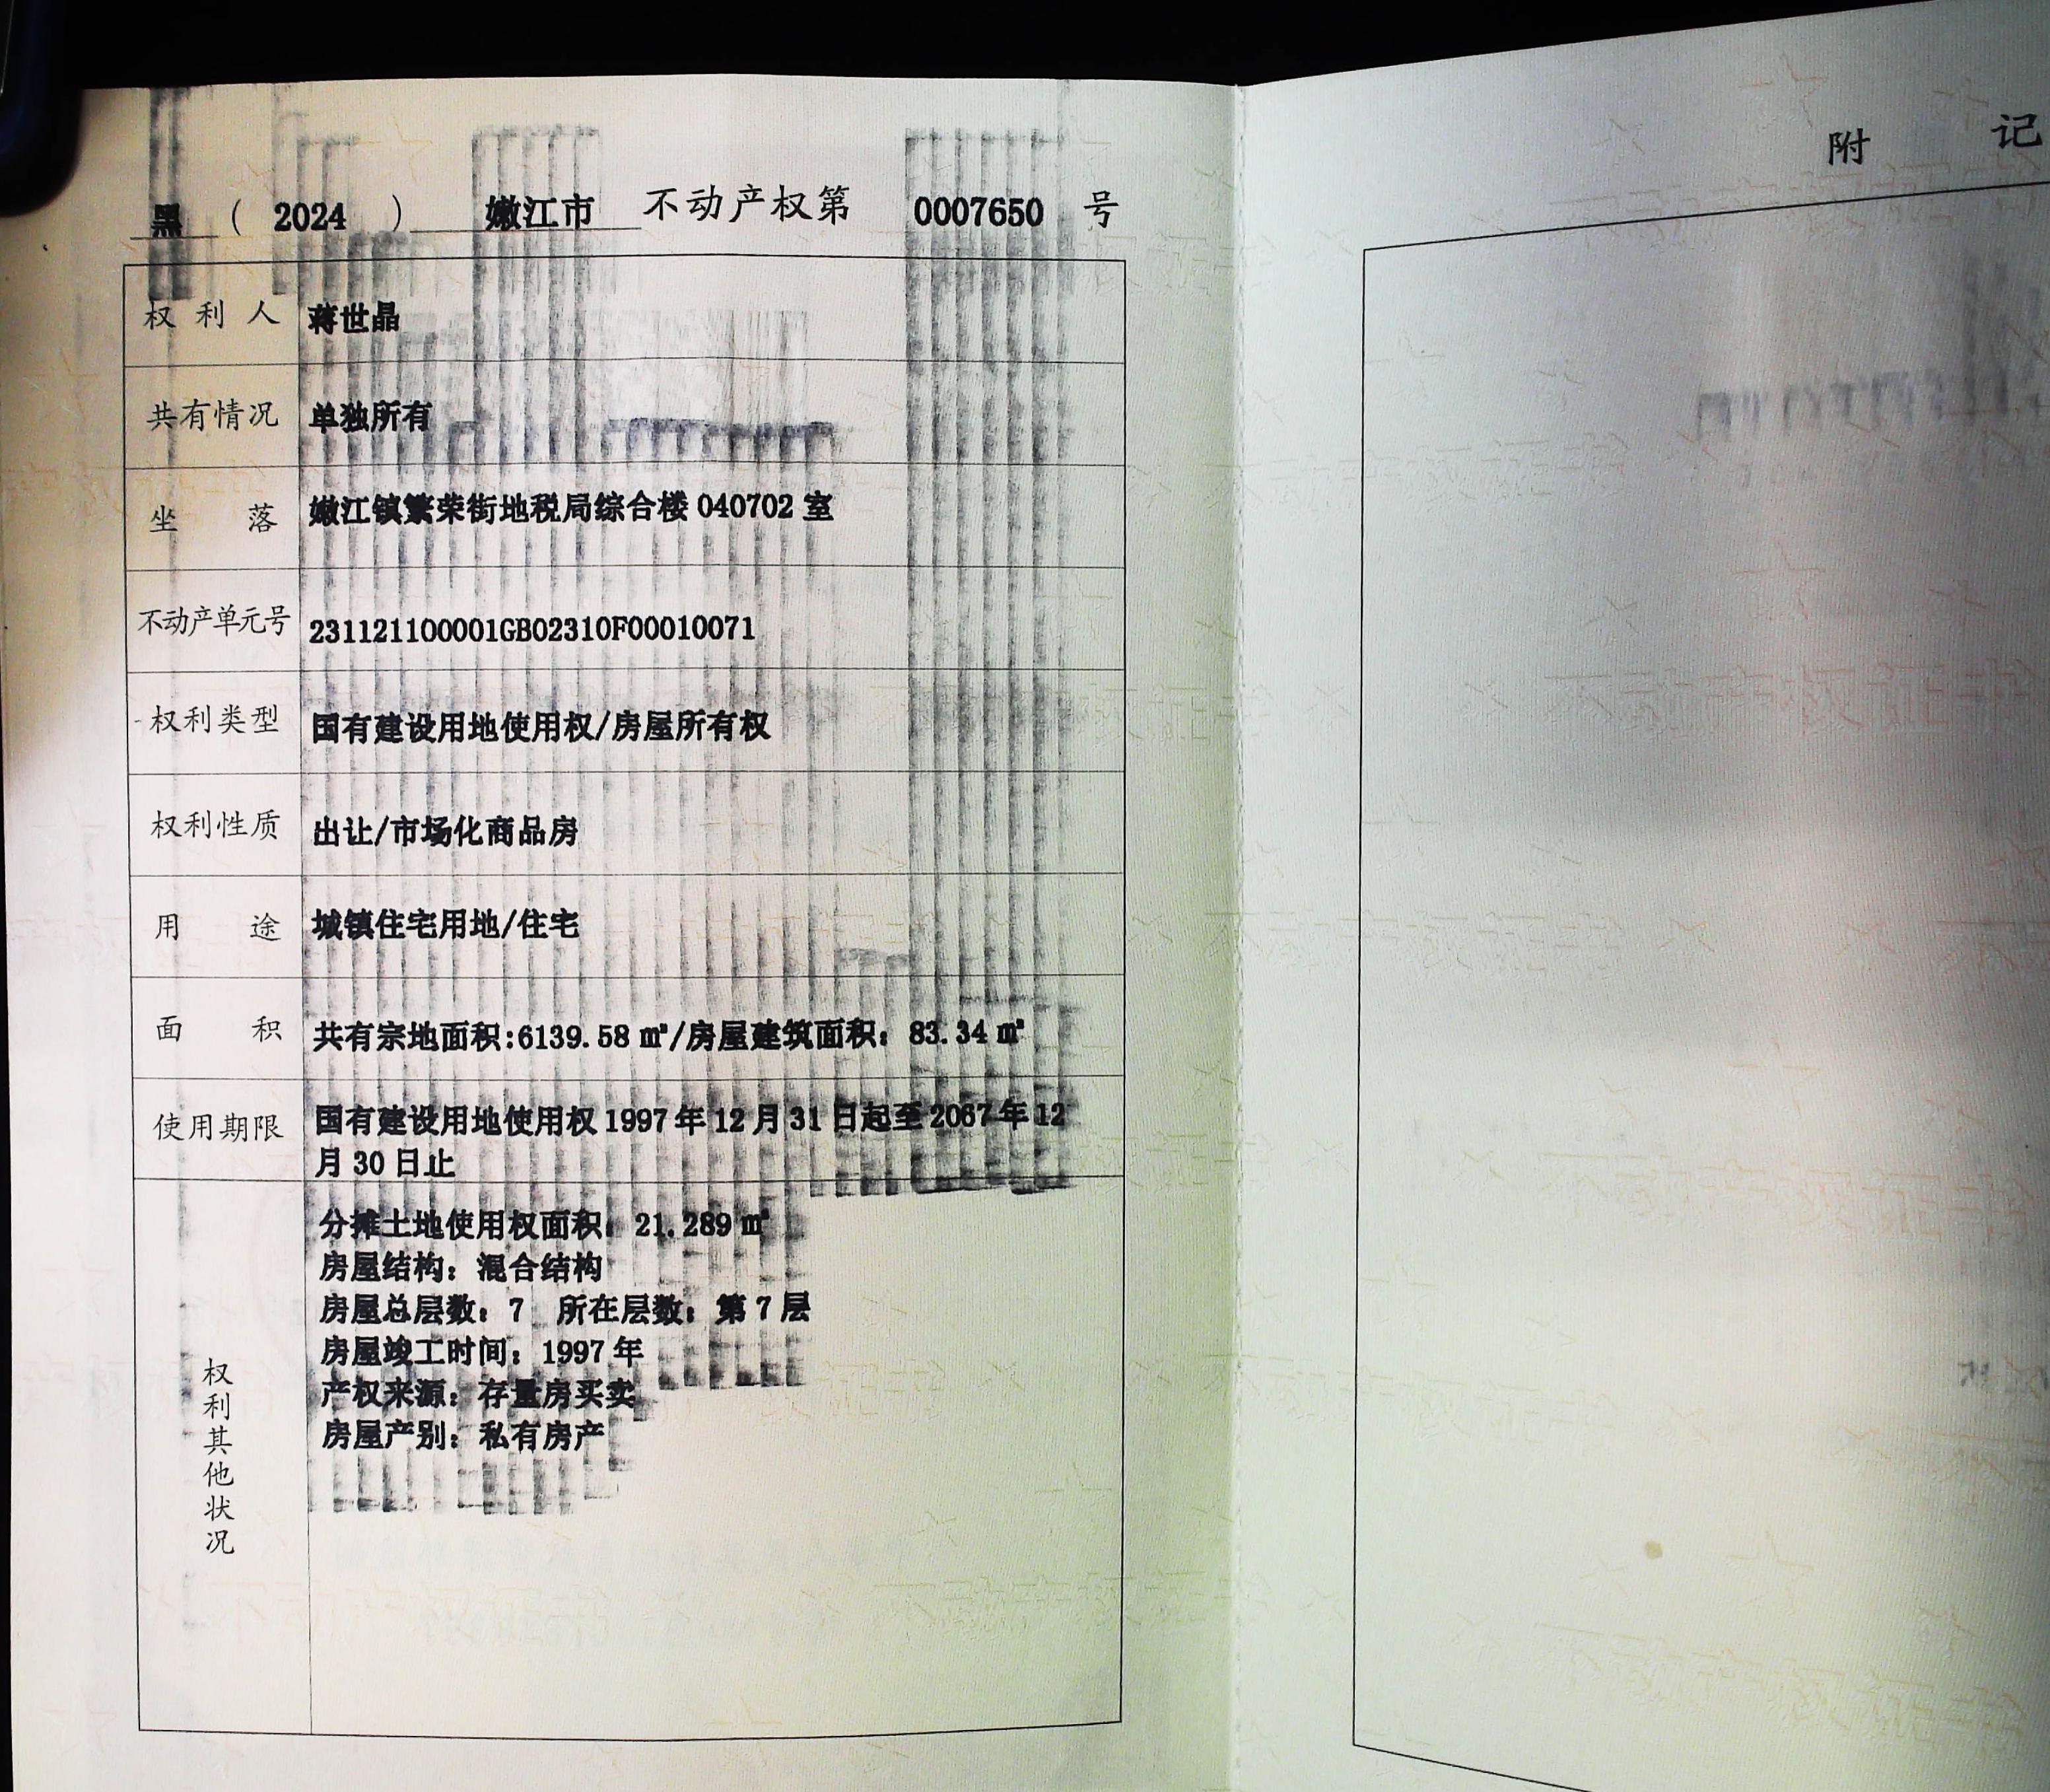 黑（2024）嫩江市 不动产权第 0007650 号
权利人 蒋世晶
共有情况 单独所有
坐落 嫩江镇繁荣街地税局综合楼 040702 室
不动产单元号 231121100001GB02310F00010071
权利类型 国有建设用地使用权/房屋所有权
权利性质 出让/市场化商品房
用途 城镇住宅用地/住宅
面积 共有宗地面积:6139.58 ㎡/房屋建筑面积：83.34 ㎡
使用期限 国有建设用地使用权 1997 年 12 月 31 日起至 2067 年 12
月 30 日止
权利其他状况
分摊土地使用权面积：21.289 ㎡
房屋结构：混合结构
房屋总层数：7 所在层数：第 7 层
房屋竣工时间：1997 年
产权来源：存量房买卖
房屋产别：私有房产
附 记